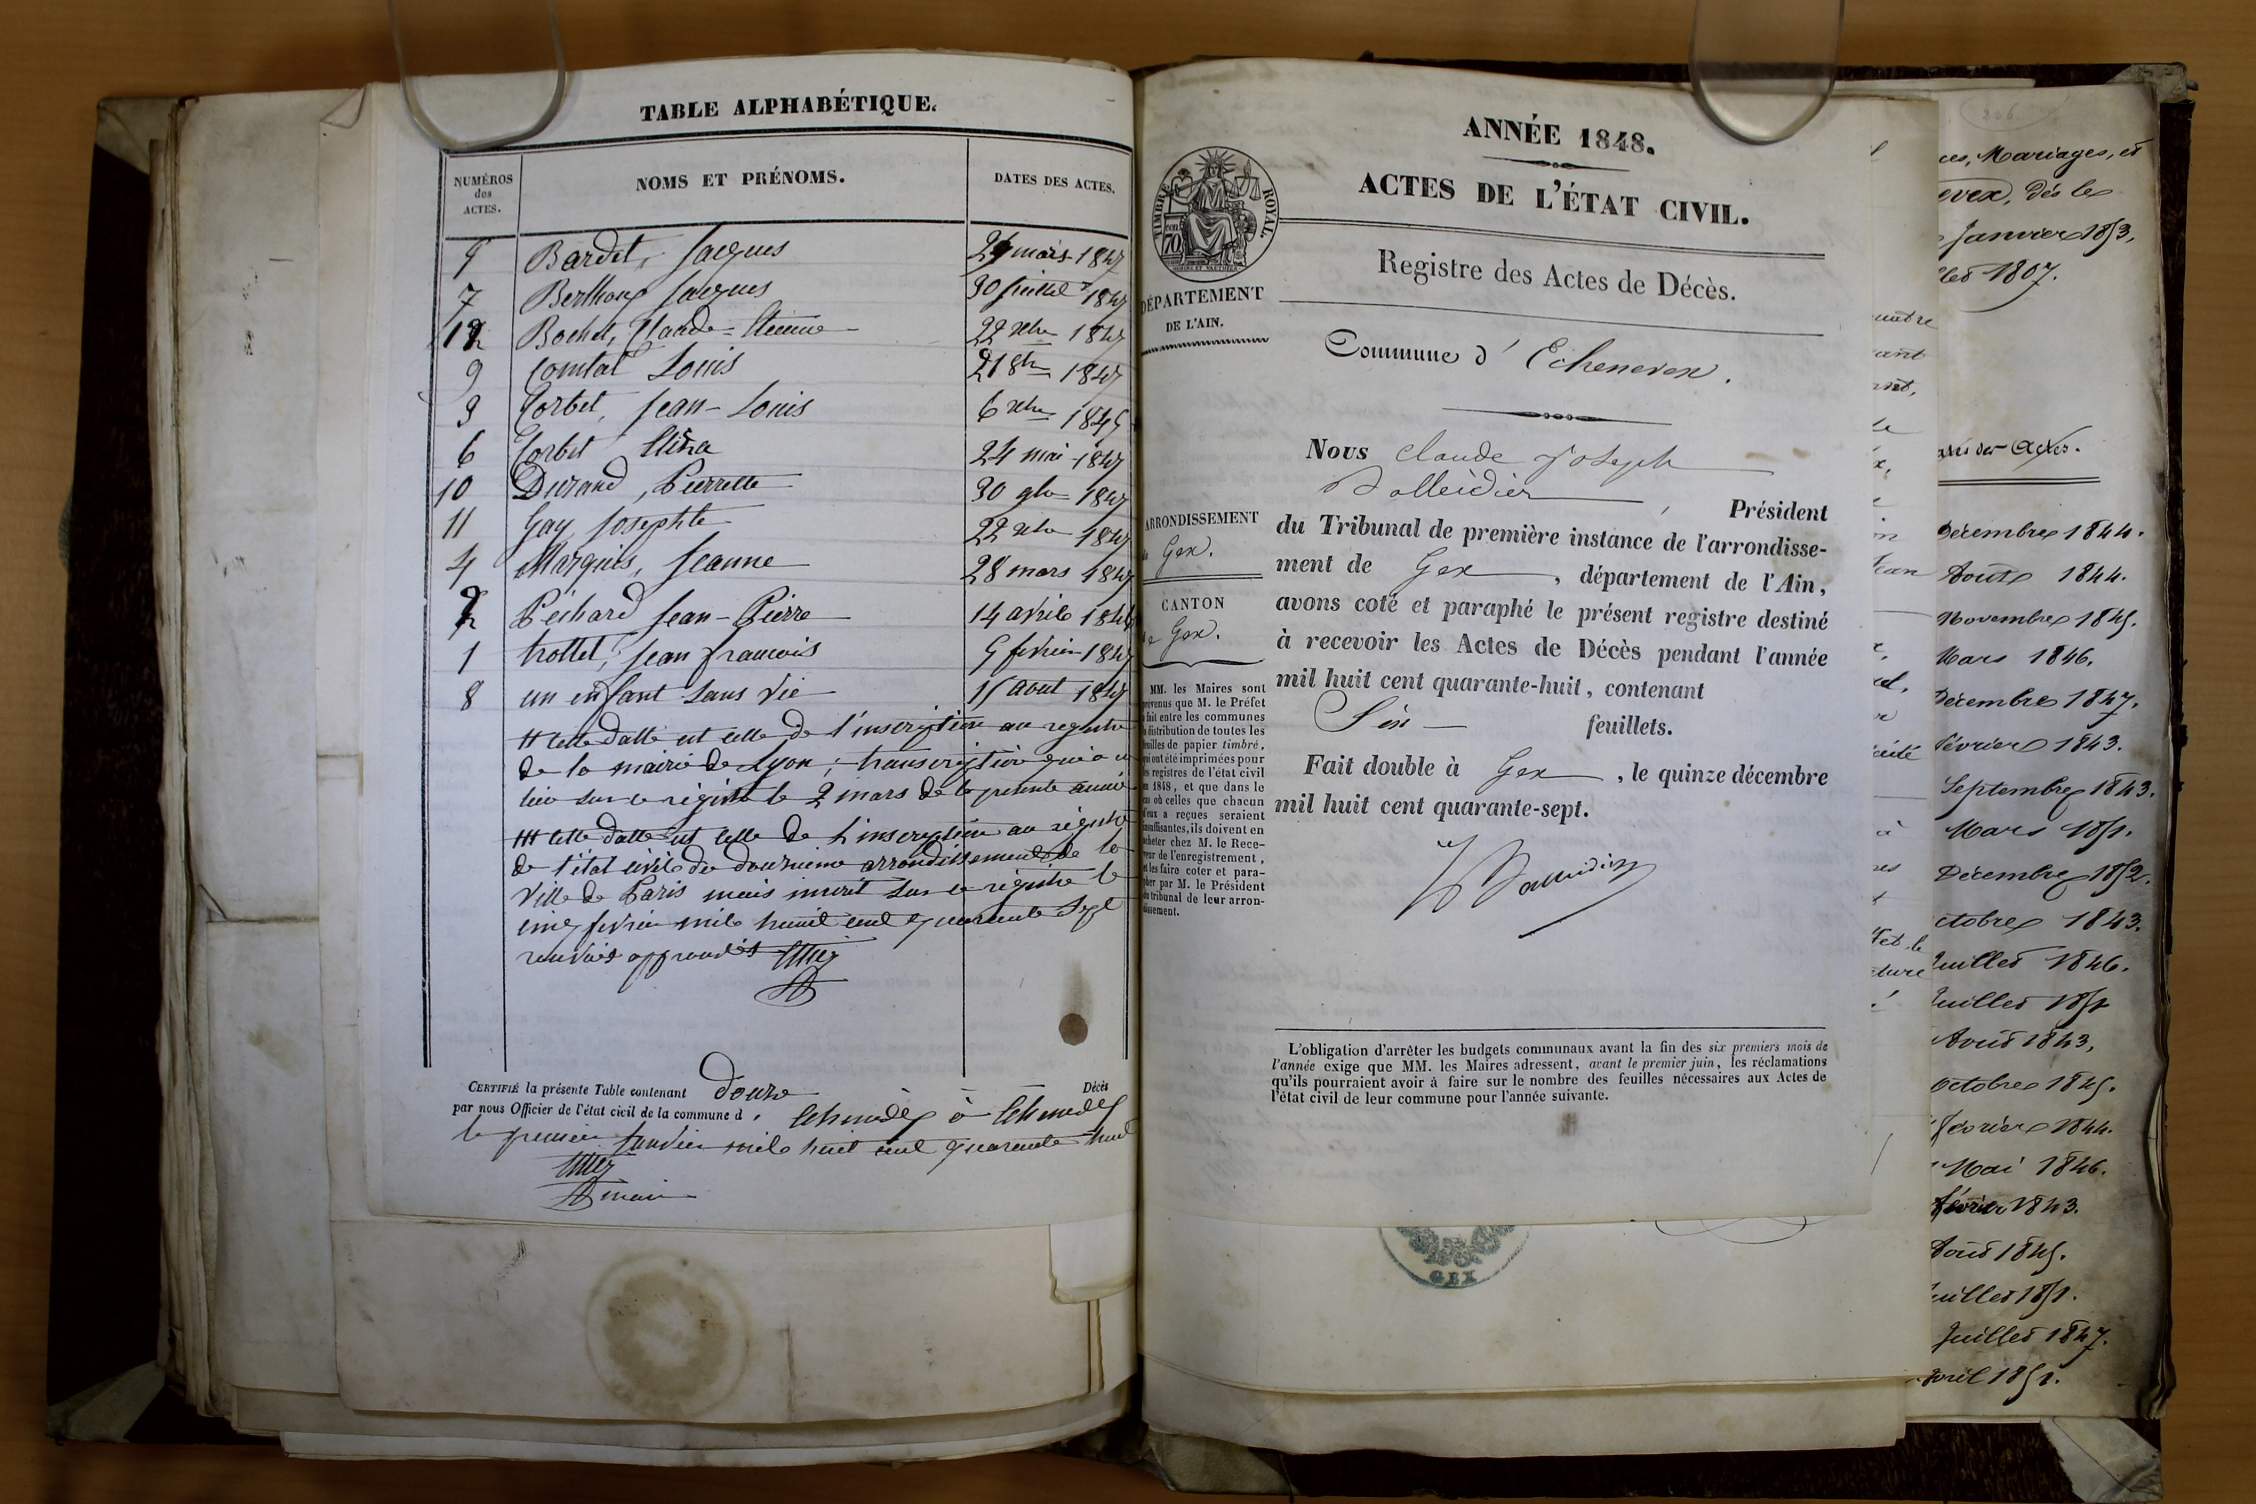 TABLE ALPHABÉTIQUE.
NUMÉROS
des
ACTES.
NOMS ET PRÉNOMS.
DATES DES ACTES.
5 Bardet, Jacques 24 mars 1847
7 Berthoux Jacques 30 juillet 1847
12 Bochet, Claude-Etienne 22 xbre 1847
9 Comtat Louis 21 8bre 1847
3 Corbet, Jean-Louis 6 xbre 1845
6 Corbet Eliza 24 mai 1847
10 Durand, Pierrette 30 9bre 1847
11 Gay Josephte 22 xbre 1847
4 Marquis, Jeanne 28 mars 1847
2 Péchard Jean-Pierre 14 avril 1846
1 trottet, Jean françois 5 fevrier 1847
8 un enfant sans vie 15 aout 1847
H cette datte est celle de l'inscription au registre
de la mairie de Lyon; transcription qui a eu
lieu sur ce régistre le 2 mars de la présente année
HH cette datte est celle de l'inscription au régistre
de l'état civil du douzieme arrondissement de la
Ville de Paris mais inscrit sur ce régistre le
cinq fevrier mil huit cent quarante sept
renvois approuvés
CERTIFIÉ la présente Table contenant douze Décès
par nous Officier de l'état civil de la commune d' Echenevex à Echenevex
le premier janvier mil huit cent quarante huit
maire
ANNÉE 1848.
ACTES DE L'ÉTAT CIVIL.
TIMBRE ROYAL.
70
DÉPARTEMENT
DE L'AIN.
Registre des Actes de Décès.
Commune d' Echenevex.
ARRONDISSEMENT
de Gex.
CANTON
de Gex.
MM. les Maires sont
prévenus que M. le Préfet
a fait entre les communes
la distribution de toutes les
feuilles de papier timbré,
qui ont été imprimées pour
les registres de l'état civil
en 1848, et que dans le
cas où celles que chacun
d'eux a reçues seraient
insuffisantes, ils doivent en
acheter chez M. le Rece-
veur de l'enregistrement,
et les faire coter et para-
pher par M. le Président
du tribunal de leur arron-
dissement.
Nous Claude Joseph
Balleidier, Président
du Tribunal de première instance de l'arrondisse-
ment de Gex, département de l'Ain,
avons coté et paraphé le présent registre destiné
à recevoir les Actes de Décès pendant l'année
mil huit cent quarante-huit, contenant
Six feuillets.
Fait double à Gex, le quinze décembre
mil huit cent quarante-sept.
L'obligation d'arrêter les budgets communaux avant la fin des six premiers mois de
l'année exige que MM. les Maires adressent, avant le premier juin, les réclamations
qu'ils pourraient avoir à faire sur le nombre des feuilles nécessaires aux Actes de
l'état civil de leur commune pour l'année suivante.
GEX
ces, Mariages, et
evex, Dès le
Janvier 1853,
llet 1807.
ates des Actes.
Décembre 1844.
Août 1844.
Novembre 1845.
Mars 1846.
Décembre 1847.
février 1843.
Septembre 1843.
Mars 1851.
Décembre 1852.
ctobre 1843.
Juillet 1846.
Juillet 1851
Août 1843,
Octobre 1845.
février 1844.
Mai 1846.
février 1843.
Août 1845.
Juillet 1851.
Juillet 1847.
Avril 1851.